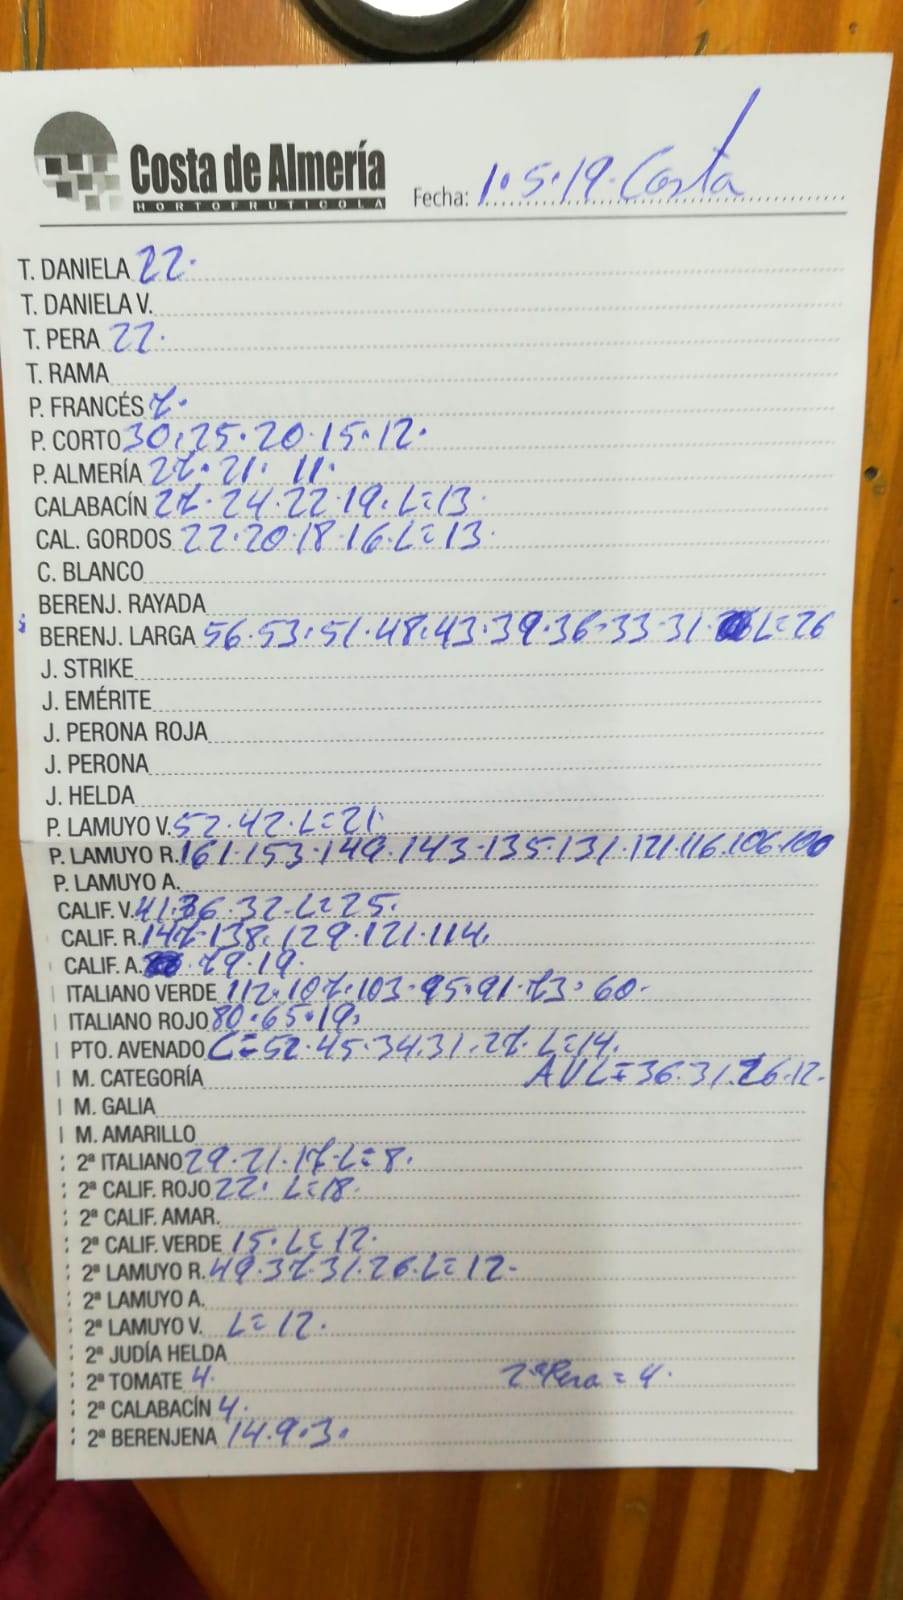 Costa de Almería
HORTOFRUTICOLA
Fecha: 1.5.19. Costa
T. DANIELA 22.
T. DANIELA V.
T. PERA 22.
T. RAMA
P. FRANCÉS 7.
P. CORTO 30.25.20.15.12.
P. ALMERÍA 27.21. 11.
CALABACÍN 27.24.22.19.L=13.
CAL. GORDOS 22.20.18.16.L=13.
C. BLANCO
BERENJ. RAYADA
BERENJ. LARGA 56.53.51.48.43.39.36.33.31. L=26
J. STRIKE
J. EMÉRITE
J. PERONA ROJA
J. PERONA
J. HELDA
P. LAMUYO V. 52.42.L=21.
P. LAMUYO R. 161.153.149.143.135.131.121.116.106.100
P. LAMUYO A.
CALIF. V. 41.36.32.L=25.
CALIF. R. 147.138.129.121.114.
CALIF. A. 79.19.
ITALIANO VERDE 112.107.103.95.91.73.60.
ITALIANO ROJO 80.65.19.
PTO. AVENADO C=52.45.34.31.27.L=14.
M. CATEGORÍA AVL=36.31.26.12.
M. GALIA
M. AMARILLO
2ª ITALIANO 29.21.17.L=8.
2ª CALIF. ROJO 22. L=18.
2ª CALIF. AMAR.
2ª CALIF. VERDE 15.L=12.
2ª LAMUYO R. 49.37.31.26.L=12.
2ª LAMUYO A.
2ª LAMUYO V. L=12.
2ª JUDÍA HELDA
2ª TOMATE 4. 2ª Pera = 4.
2ª CALABACÍN 4.
2ª BERENJENA 14.9.3.